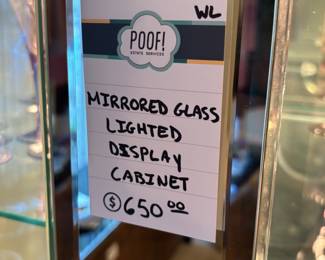 WL
POOF!
ESTATE SERVICES
MIRRORED GLASS
LIGHTED
DISPLAY
CABINET
$650.00